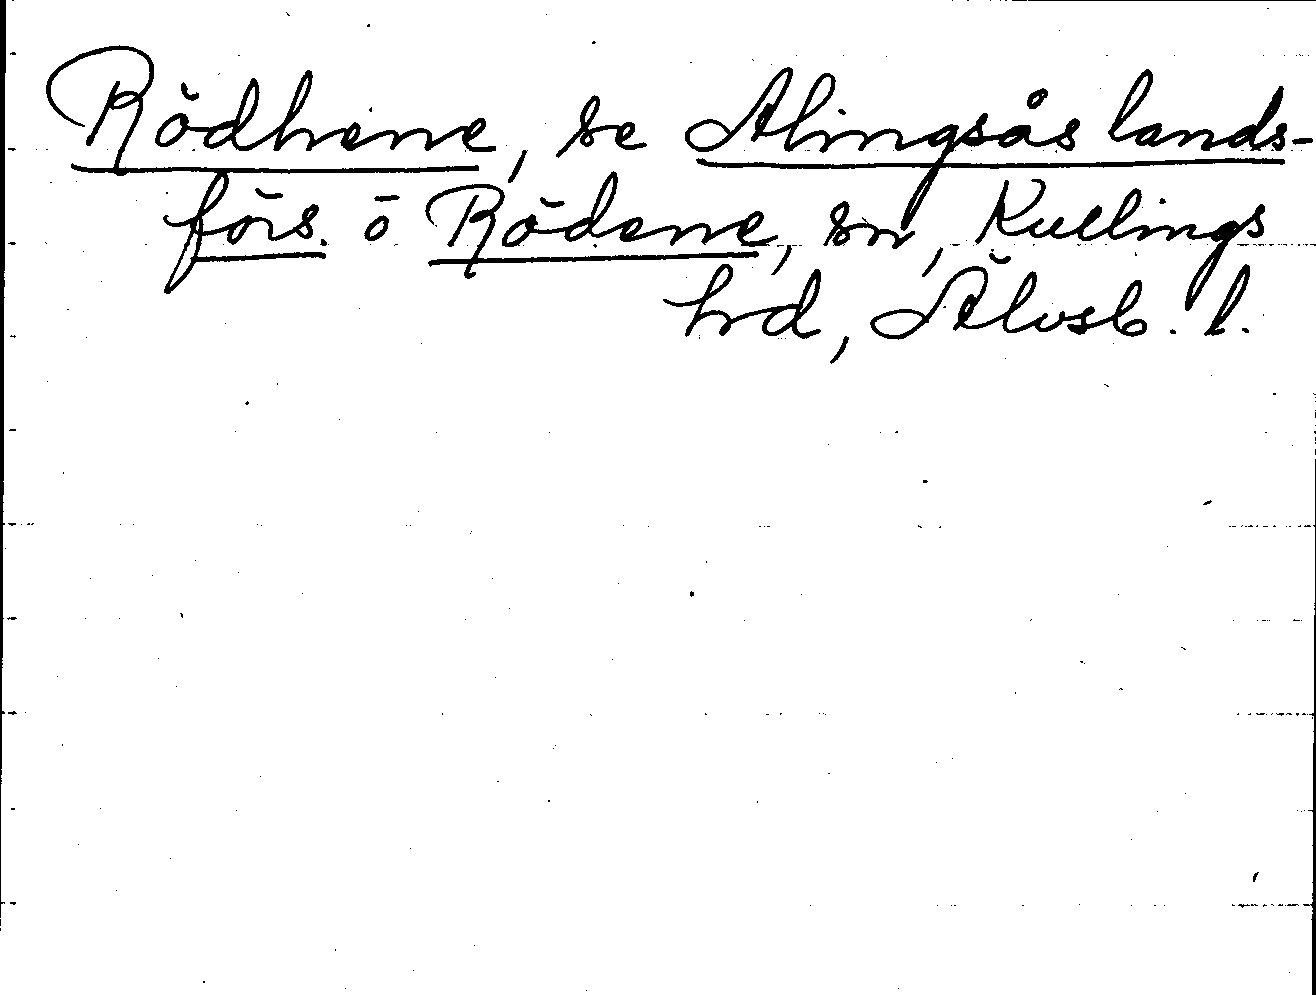 Rödhene, se Alingsås lands-
förs. o Rödene, sn, Kullings
hd, Älvsb. l.